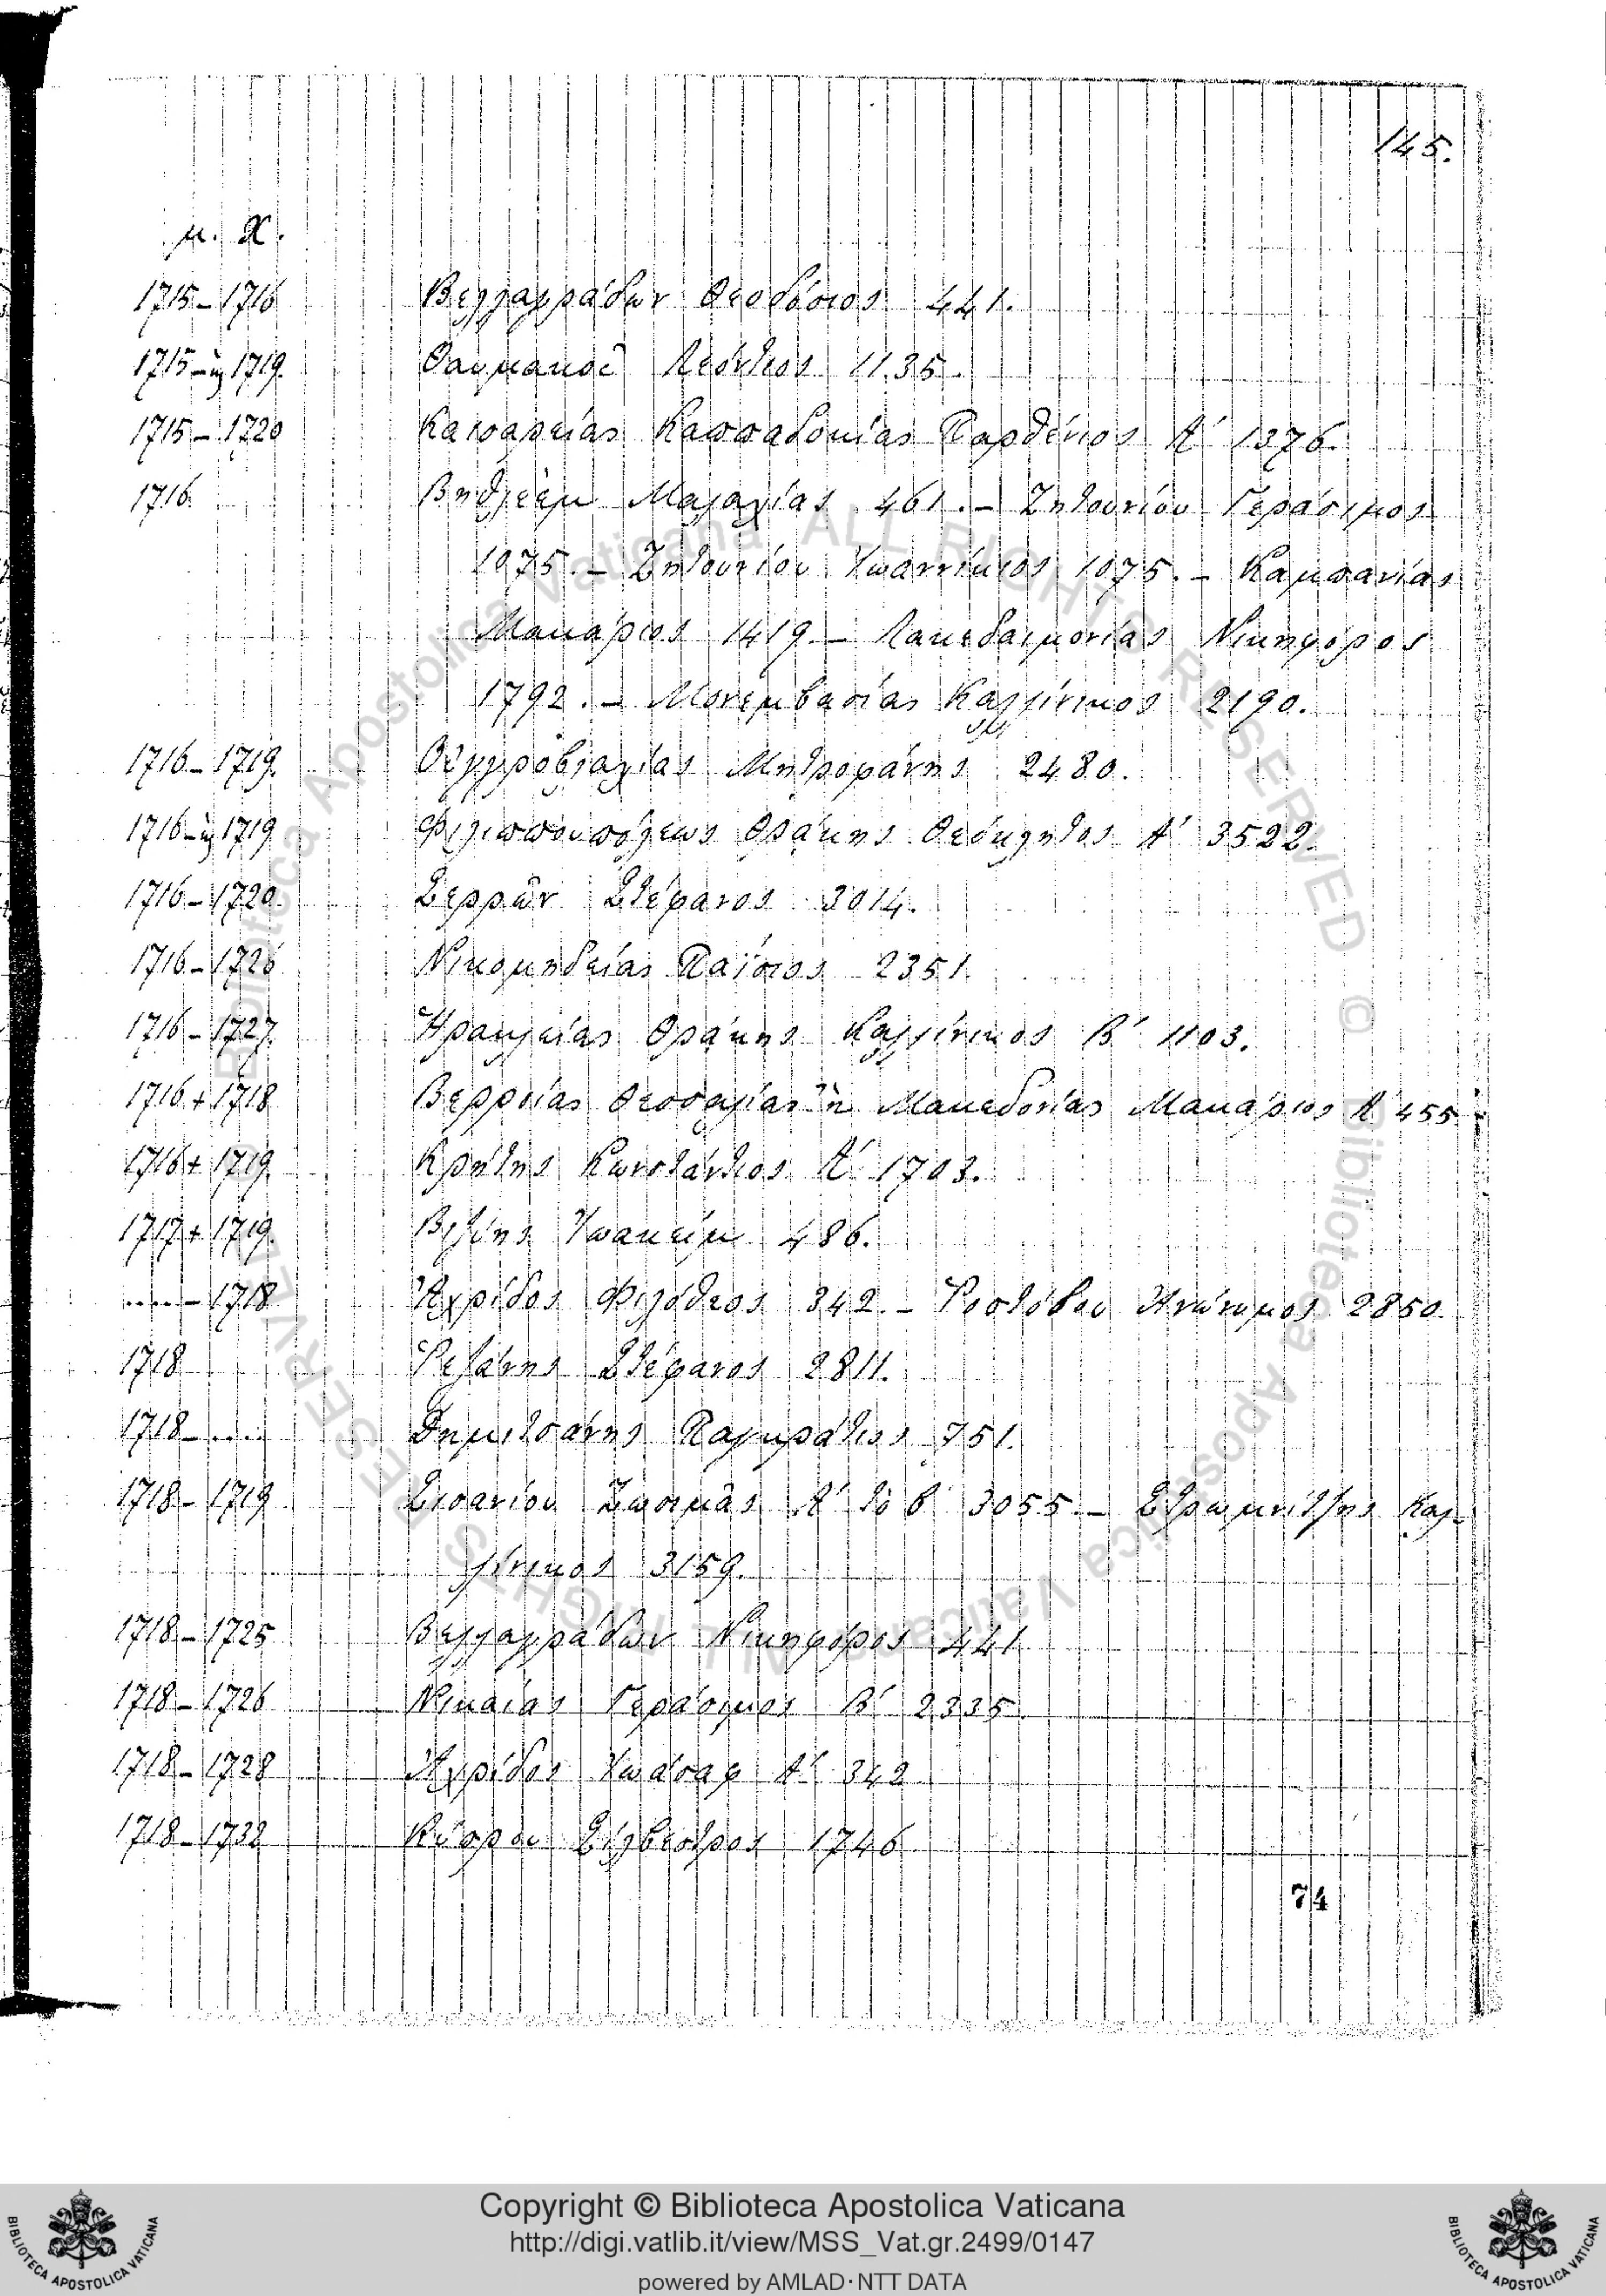 145.
μ. Χ.
1715–1716 Βελλαγράδων Θεοδόσιος 441.
1715–ἢ 1719. Θαυμακοῦ Λεόντιος 1135.
1715–1720 Καισαρείας Καππαδοκίας Παρθένιος Α΄ 1376.
1716. Βηθλεὲμ Μαλαχίας 461.– Ζητουνίου Γεράσιμος
1075.– Ζητουνίου Ἰωαννίκιος 1075.– Καμπανίας
Μακάριος 1419.– Λακεδαιμονίας Νικηφόρος
1792.– Μονεμβασίας Καλλίνικος 2190.
1716–1719. Οὑγγροβλαχίας Μητροφάνης 2480.
1716–ἢ 1719 Φιλιππουπόλεως Θράκης Θεόκλητος Α΄ 3522.
1716–1720. Σερρῶν Στέφανος 3014.
1716–1726 Νικομηδείας Παΐσιος 2351.
1716–1727. Ἡρακλείας Θράκης Καλλίνικος Β΄ 1103.
1716 + 1718 Βερροίας Θεσσαλίας ἢ Μακεδονίας Μακάριος Α΄ 455.
1716 + 1719. Κρήτης Κωνστάντιος Α΄ 1703.
1717 + 1719. Βιζύης Ἰωακείμ 486.
....–1718 Ἀχρίδος Φιλόθεος 342.– Ροστόβου Ἀνώνυμος 2850.
1718 Ρεζάνης Στέφανος 2811.
1718–.... Δημιτσάνης Παγκράτιος 751.
1718–1719. Σισανίου Ζωσιμᾶς Α΄ τὸ β΄ 3055.– Στρωμνίτζης Καλ-
λίνικος 3159.
1718–1725 Βελλαγράδων Νικηφόρος 441.
1718–1726 Νικαίας Γεράσιμος Β΄ 2335
1718–1728 Ἀχρίδος Ἰωάσαφ Α΄ 342
1718–1732 Κύπρου Σίλβεστρος 1746
74
Copyright © Biblioteca Apostolica Vaticana
http://digi.vatlib.it/view/MSS_Vat.gr.2499/0147
powered by AMLAD·NTT DATA